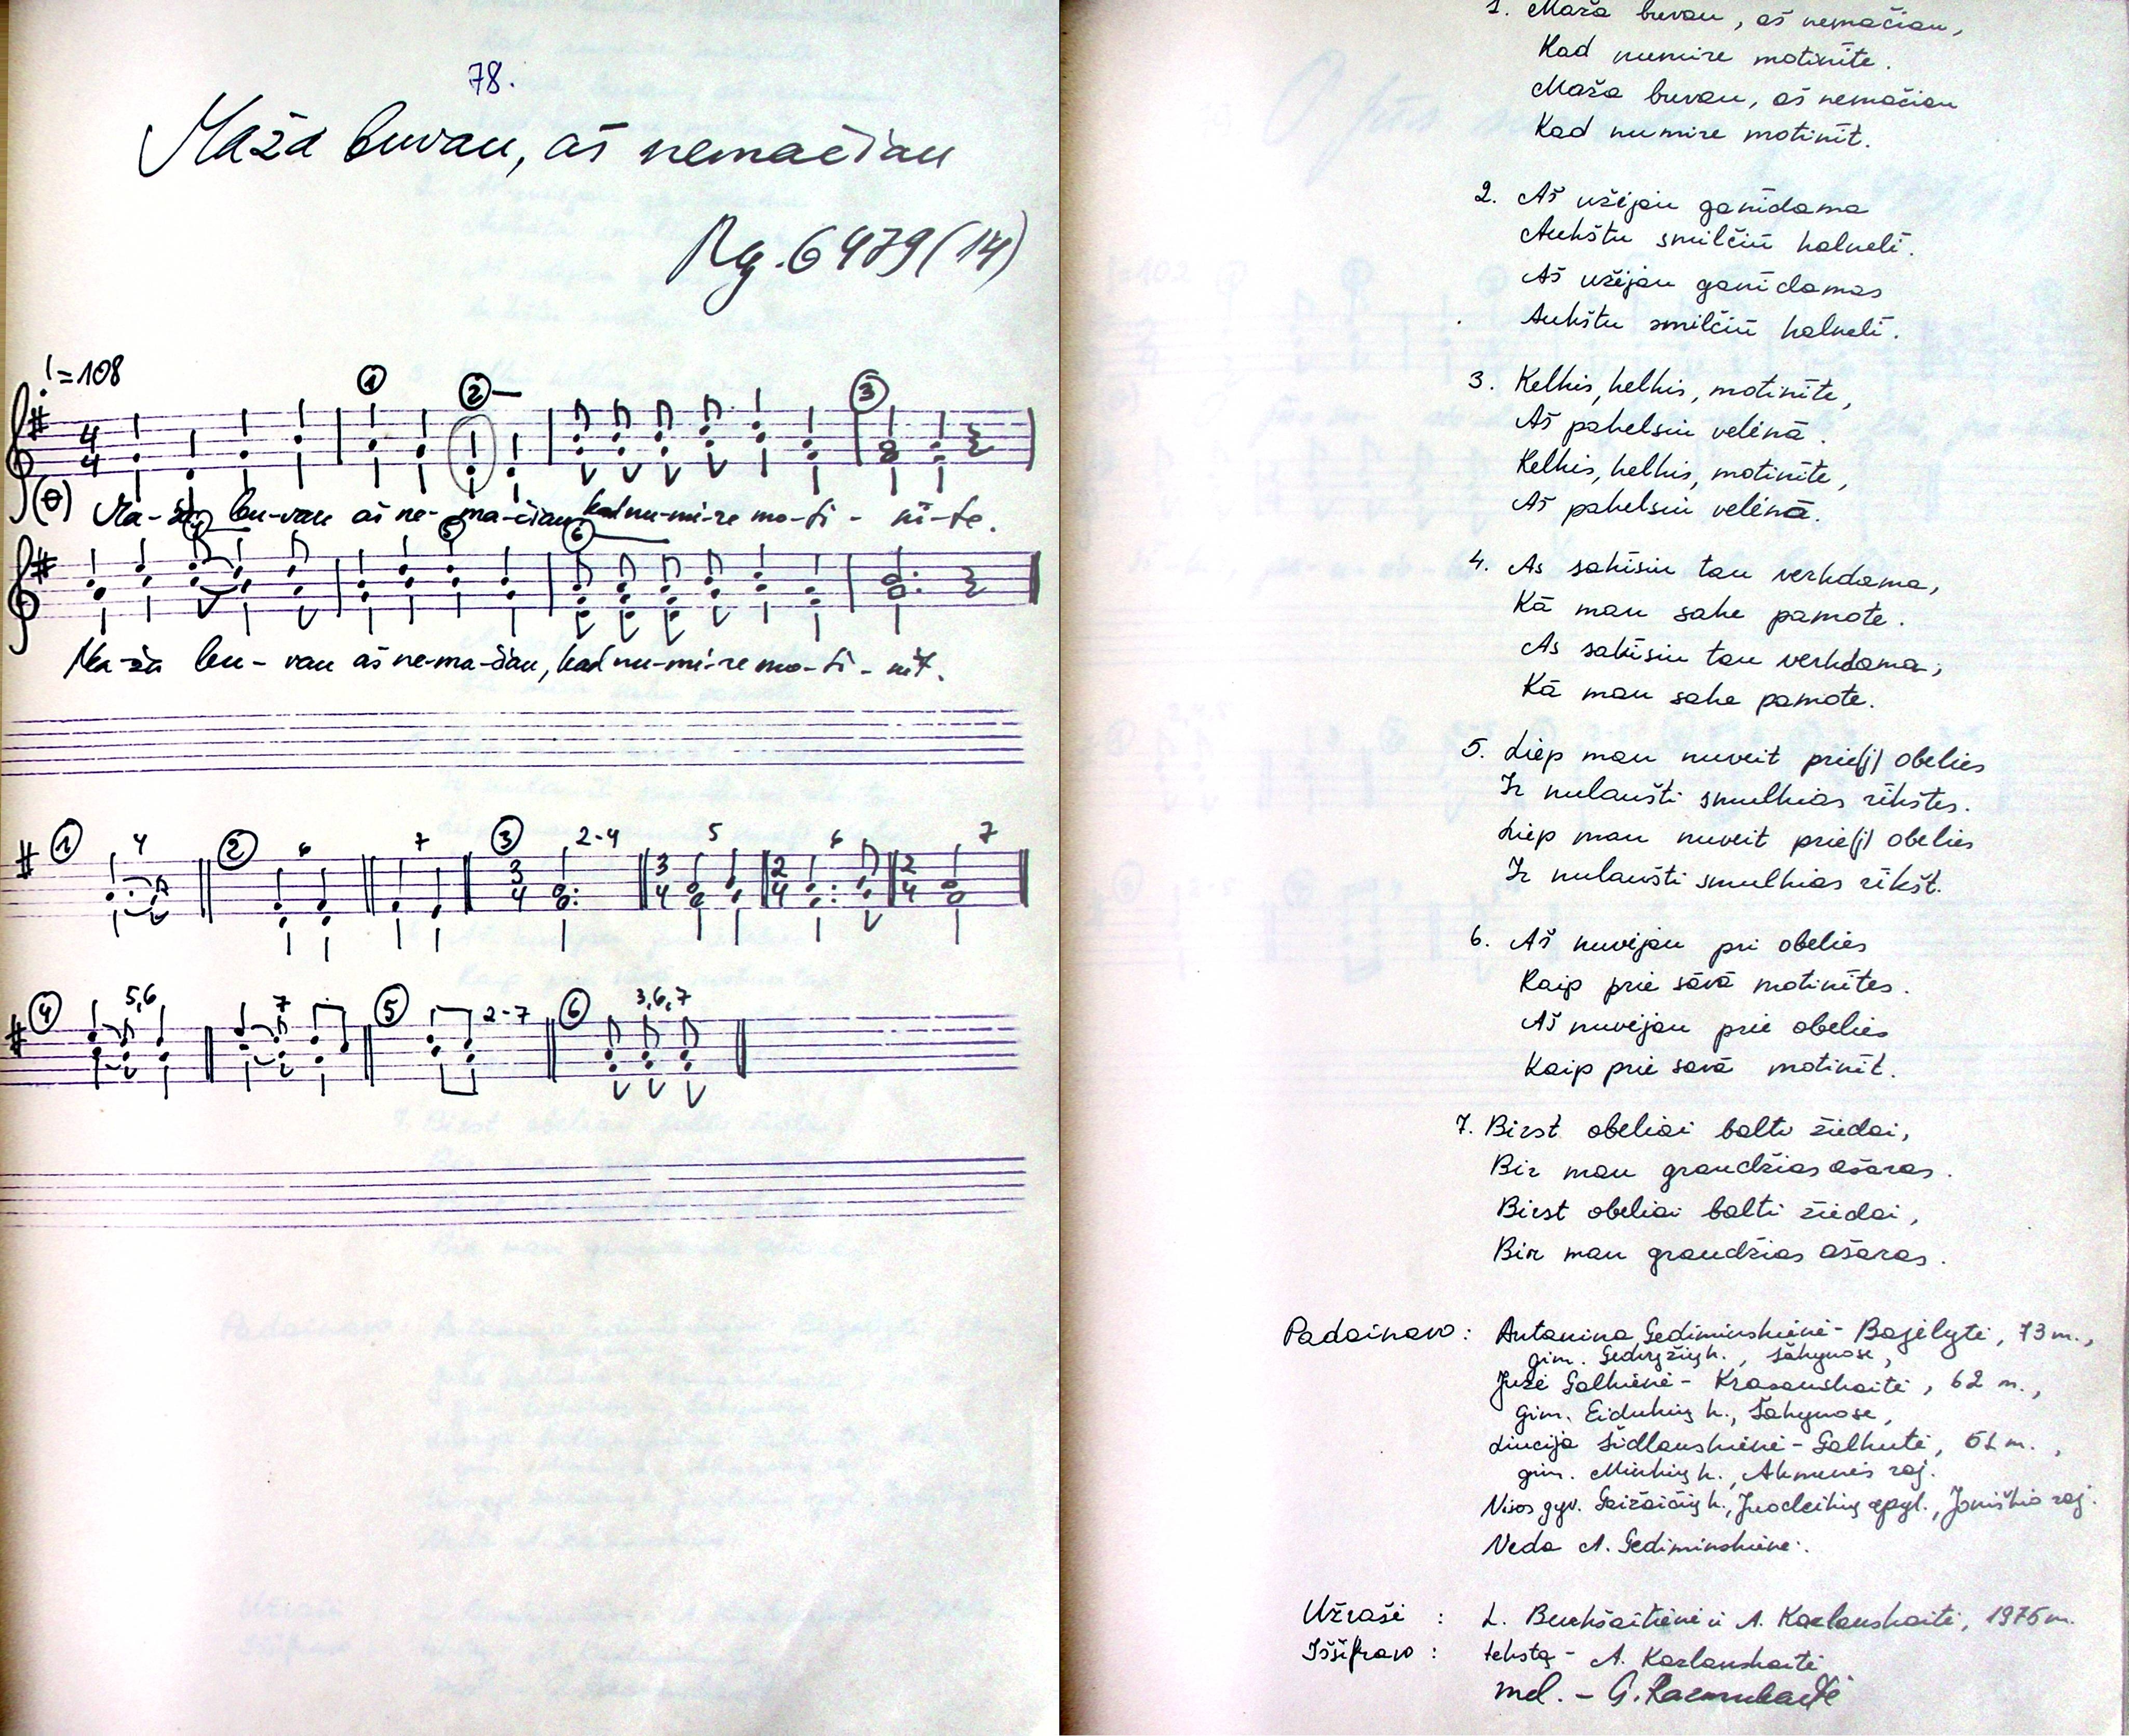 78.
Maža buvau, aš nemačiau
Rg. 6479(14)
=108
① ② ③
4
4
(θ) Ma-ža bu-vau aš ne-ma-čiau, kad nu-mi-re mo-ti-nī-te.
④ ⑤ ⑥
Ma-ža bu-vau aš ne-ma-čiau, kad nu-mi-re mo-ti-nīt.
① 4 ② 6 7 ③ 2-4 5 6 7
3 3 2 2
4 4 4 4
④ 5,6 7 ⑤ 2-7 ⑥ 3,6,7
1. Maža buvau, aš nemačiau,
Kad numire motinīte.
Maža buvau, aš nemačiau
Kad numire motinīt.
2. Aš užėjau ganīdama
Aukštu smilčiū kalnelī.
Aš užėjau ganīdamas
Aukštu smilčiū kalnelī.
3. Kelkis, kelkis, motinīte,
Aš pakelsiu velėnā.
Kelkis, kelkis, motinīte,
Aš pakelsiu velėnā.
4. As sakīsiu tau verkdama,
Kā man sake pamote.
As sakīsiu tau verkdama,
Kā man sake pamote.
5. Liep man nuveit prie(j) obelies
Ir nulaušti smulkias rīkštes.
Liep man nuveit prie(j) obelies
Ir nulaušti smulkias rīkšt.
6. Aš nuvėjau pri obelies
Kaip prie savā motinītes.
Aš nuvėjau prie obelies
Kaip prie savā motinīt.
7. Birst obeliai balti žiedai,
Bir man graudžias ašaras.
Birst obeliai balti žiedai,
Bir man graudžias ašaras.
Padainavo: Antanina Gediminskienė - Bagėlytė, 73 m.,
gim. Gedvyžių k., Šakynose,
Juzė Galkienė - Krasauskaitė, 62 m.,
gim. Eidukių k., Šakynose,
Liucija Šidlauskienė - Galkutė, m.,
gim. Minkių k., Akmenės raj.
Visos gyv. Gaižaičių k., Juodeikių apyl., Joniškio raj.
Veda A. Gediminskienė.
Užrašė : L. Burkšaitienė ir A. Kazlauskaitė, 1975 m.
Iššifravo : tekstą - A. Kazlauskaitė
mel. - G.